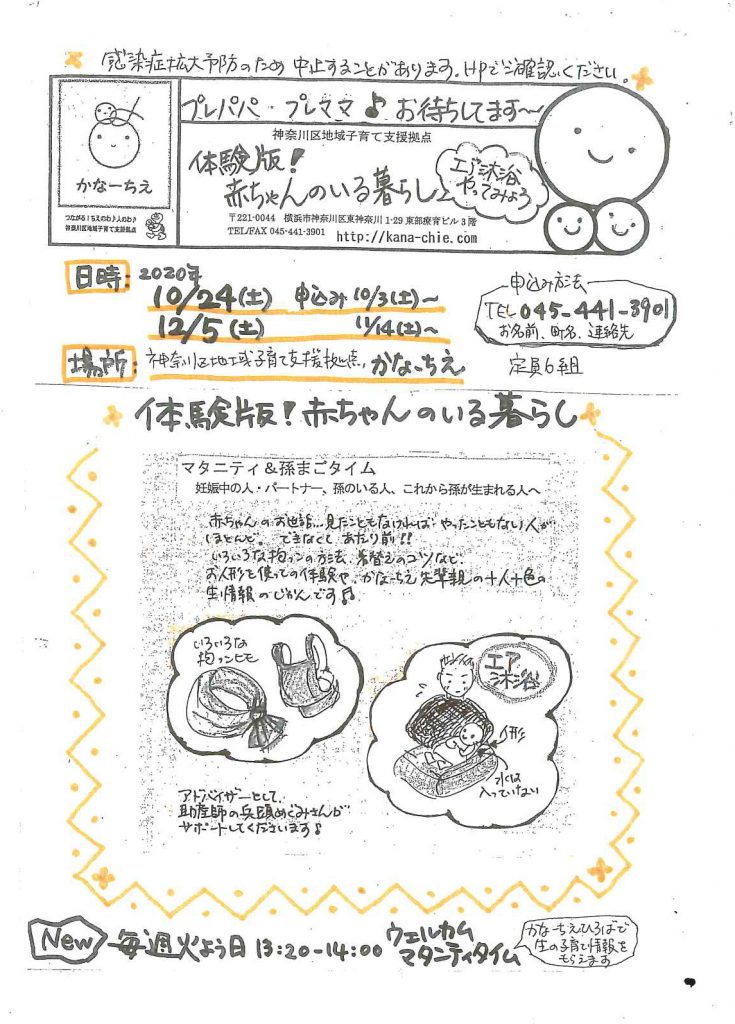 感染症拡大予防のため 中止することがあります。HPでご確認ください。
プレパパ・プレママ♪お待ちしてます〜
神奈川区地域子育て支援拠点
かなーちえ
つながる!ちえのわ♪人のわ♪
神奈川区地域子育て支援拠点
体験版!
赤ちゃんのいる暮らし
エア沐浴
やってみよう
〒221-0044 横浜市神奈川区東神奈川 1-29 東部療育ビル 3 階
TEL/FAX 045-441-3901 http://kana-chie.com
日時: 2020年
10/24(土) 申込み10/3(土)~
12/5(土) 11/14(土)~
申込み方法
TEL 045-441-3901
お名前、町名、連絡先
場所: 神奈川区地域子育て支援拠点、かなーちえ
定員6組
体験版!赤ちゃんのいる暮らし
マタニティ&孫まごタイム
妊娠中の人・パートナー、孫のいる人、これから孫が生まれる人へ
赤ちゃんのお世話…見たこともなければ やったこともない人が
ほとんど。できなくて あたり前!!
いろいろな抱っこの方法、着替えのコツなど
お人形を使っての体験や、かなーちえ先輩親の十人十色の
生情報のじかんです♪
いろいろな
抱っこヒモ
エア
沐浴
人形
水は
入っていない
アドバイザーとして、
助産師の兵頭めぐみさんが
サポートしてくださいます♪
New 毎週火よう日 13:20-14:00 ウェルカム
マタニティタイム
かなーちえひろばで
生の子育て情報を
もらえます